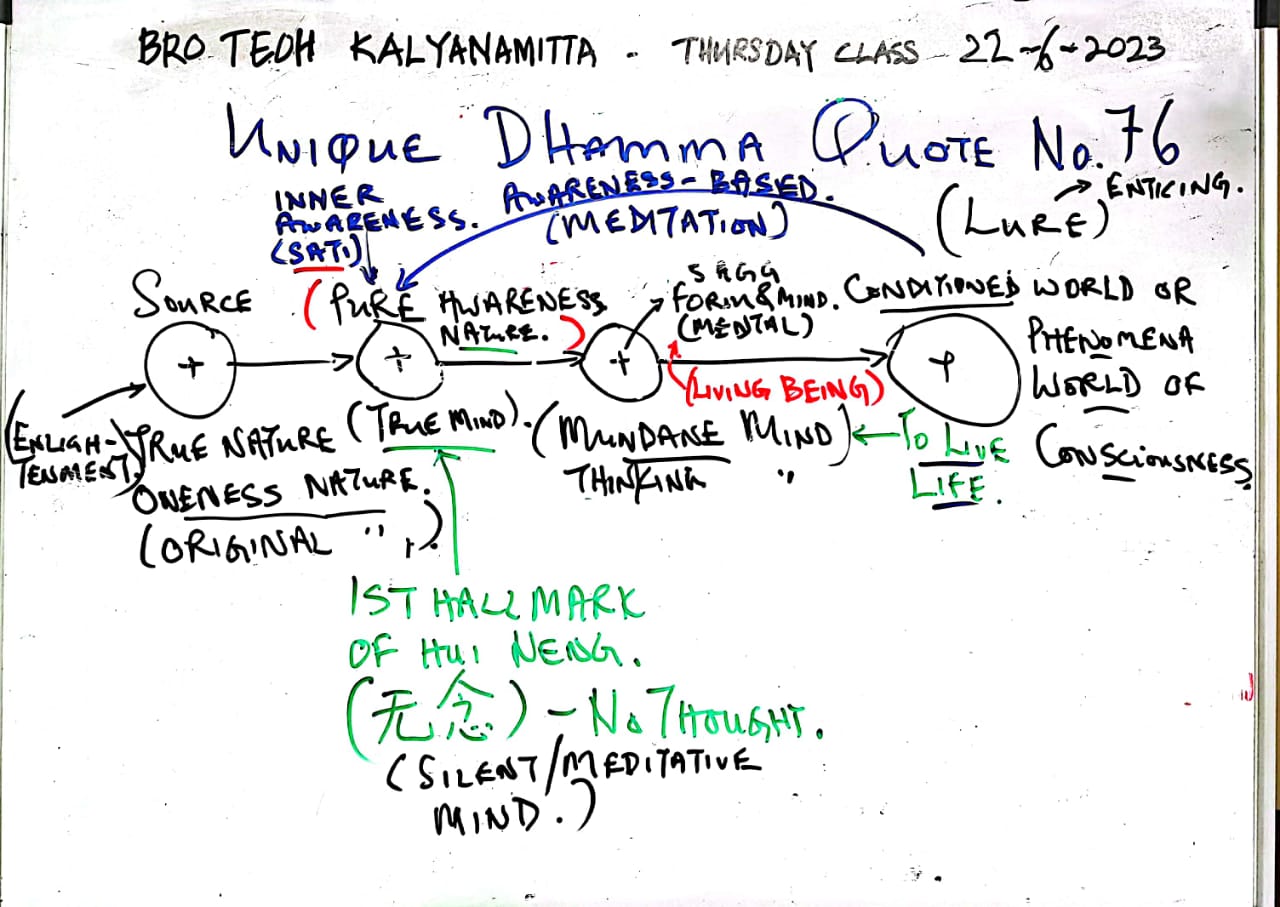 BRO TEOH KALYANAMITTA - THURSDAY CLASS - 22-6-2023
UNIQUE DHAMMA QUOTE No. 76
INNER AWARENESS. (SATI)
AWARENESS-BASED. (MEDITATION)
(LURE) → ENTICING.
SOURCE
(PURE AWARENESS NATURE.)
5 AGG
FORM & MIND.
(MENTAL)
CONDITIONED WORLD OR
PHENOMENA
WORLD OF
CONSCIOUSNESS.
+ + + +
(LIVING BEING)
(ENLIGH-
TENMENT)
TRUE NATURE
ONENESS NATURE.
(ORIGINAL " ,)
(TRUE MIND).
(MUNDANE MIND)
THINKING "
← TO LIVE
LIFE.
1ST HALLMARK
OF HUI NENG.
(无念) - No THOUGHT.
(SILENT/MEDITATIVE
MIND.)